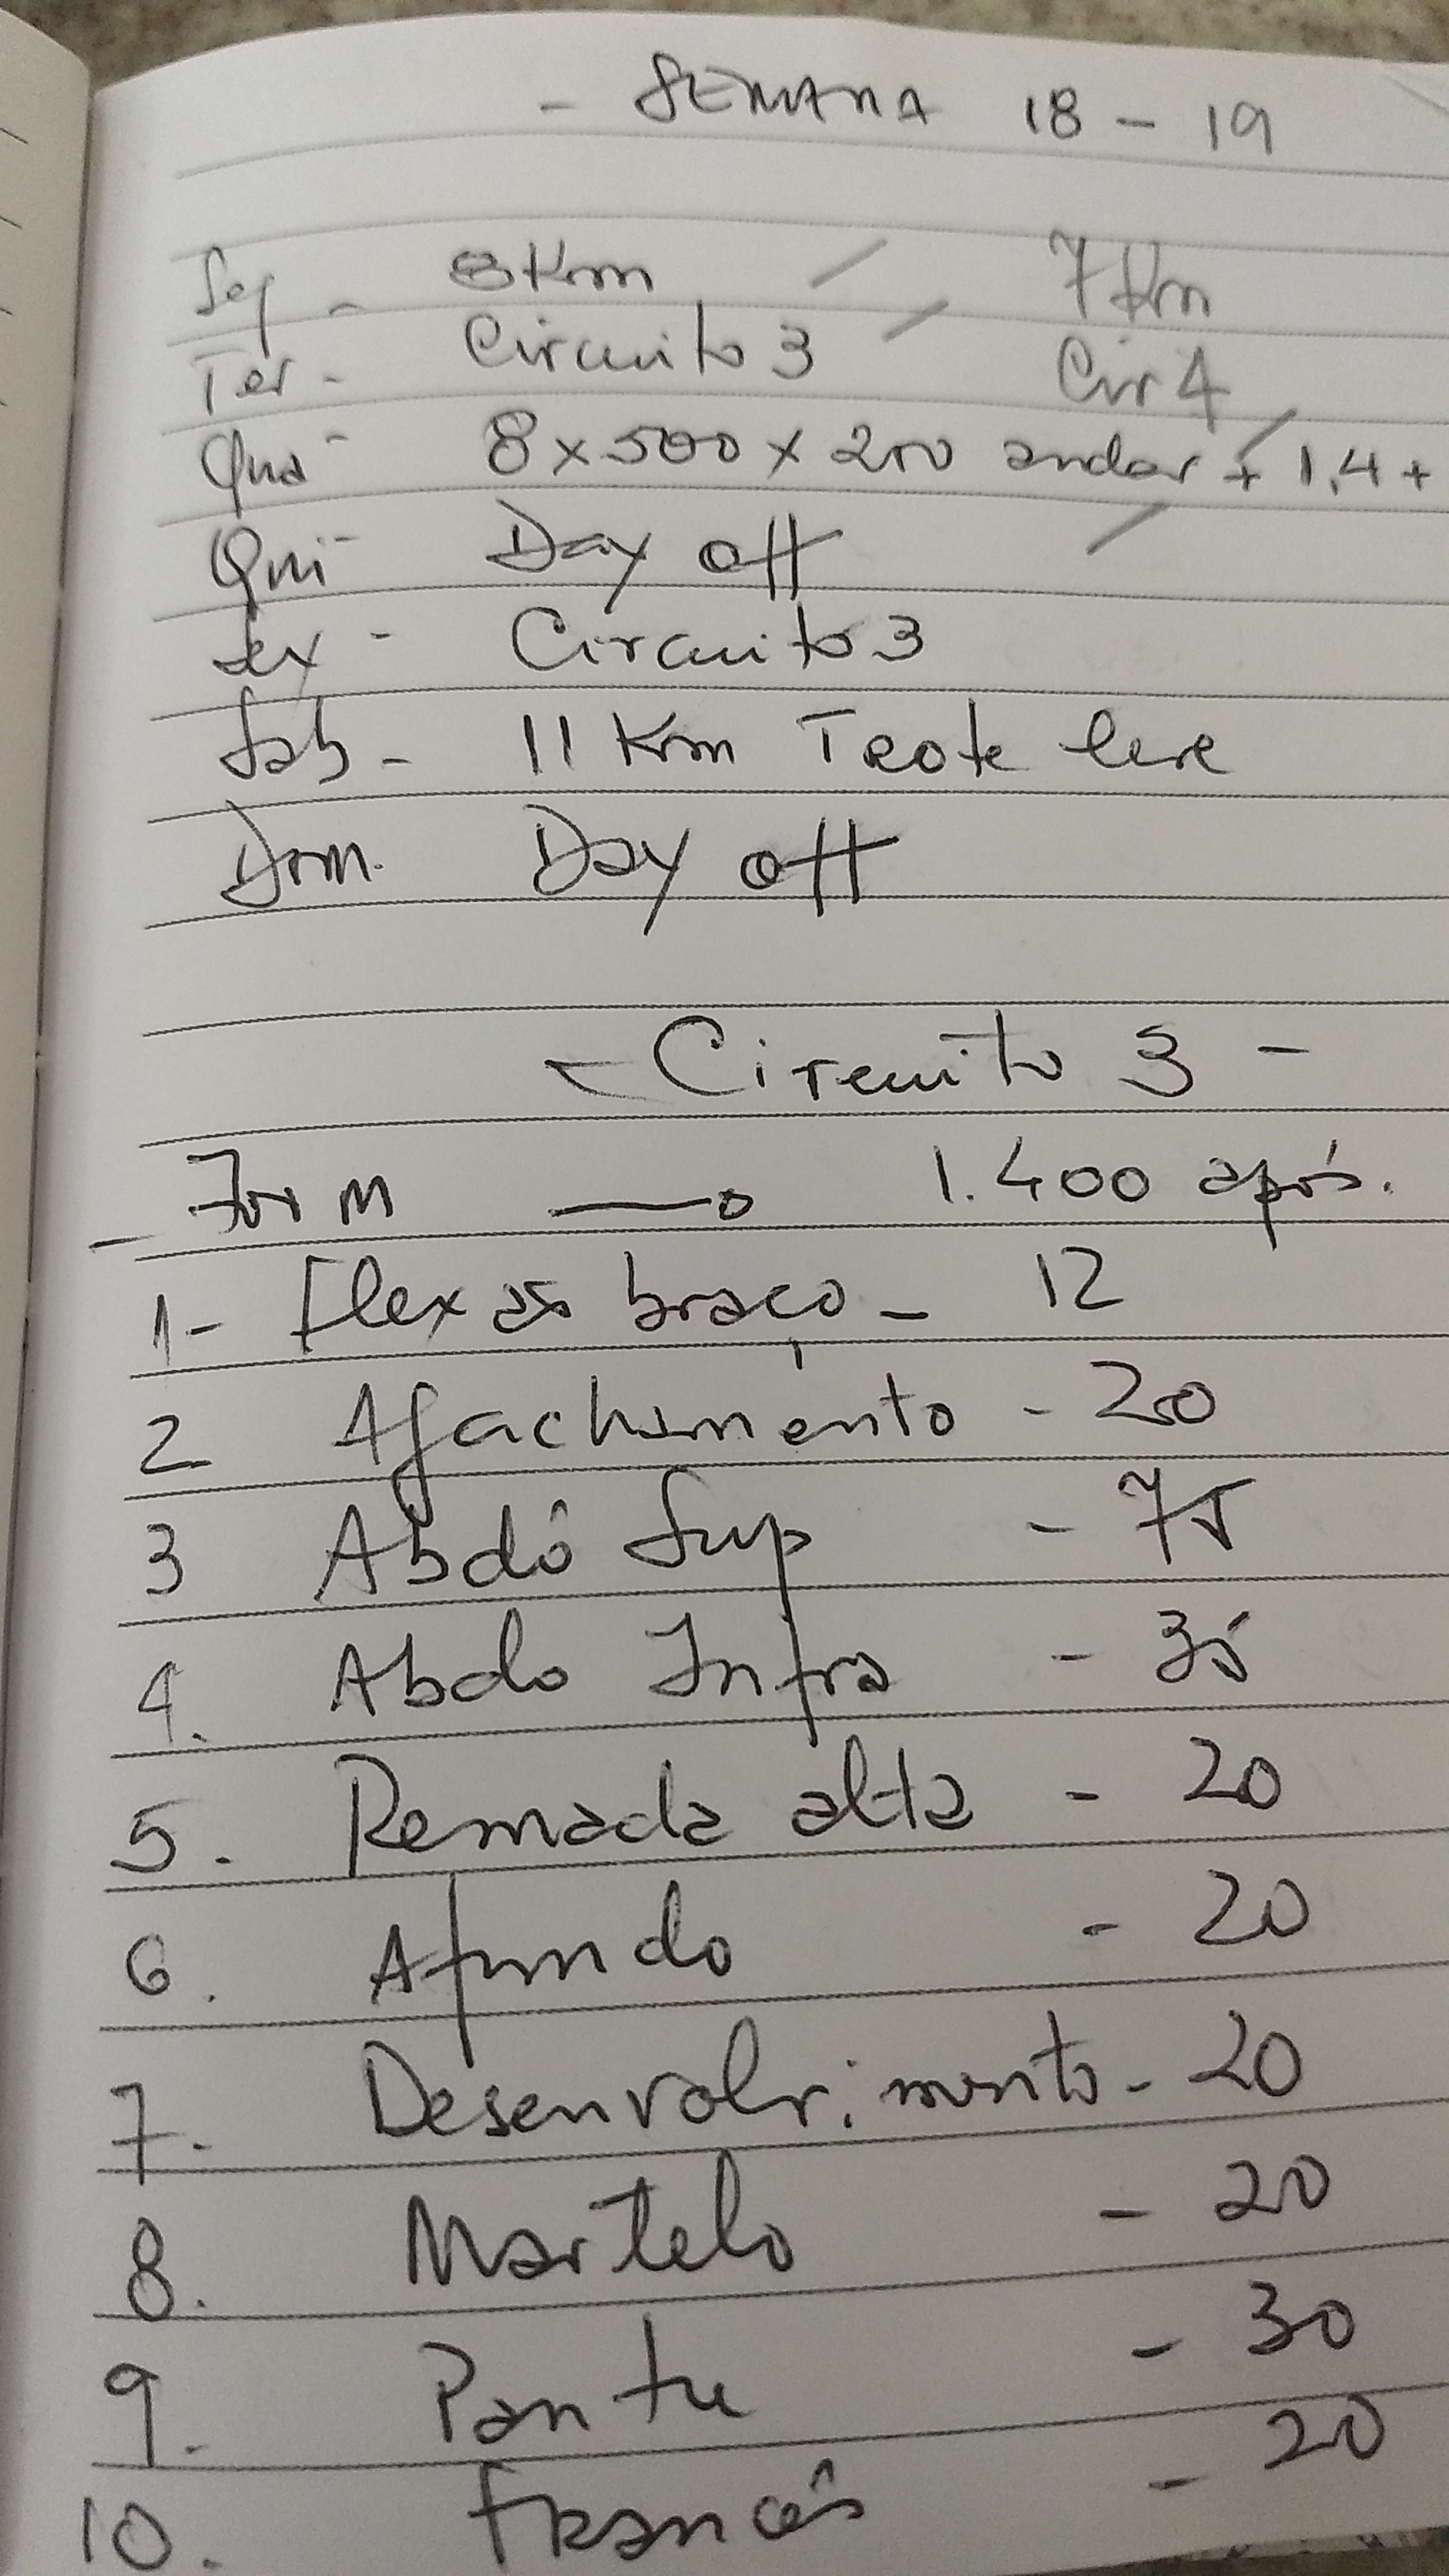 - SEMANA 18 - 19
Seg - 8 Km / 7 Km
Ter - Circuito 3 / Cir 4
Qua - 8 x 500 x 200 andar + 1,4 +
Qui - Day off /
Sex - Circuito 3
Sab - 11 Km Trote leve
Dom. Day off
- Circuito 3 -
- 700 m → 1.400 após.
1 - Flexão braço - 12
2 Agachamento - 20
3 Abdô Sup - 75
4. Abdo Infra - 35
5. Remada alta - 20
6. Afundo - 20
7. Desenvolvimento - 20
8. Martelo - 20
9. Pantu - 30
10. Francês - 20